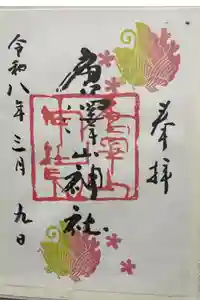 奉拝
唐澤山神社
令和八年三月九日